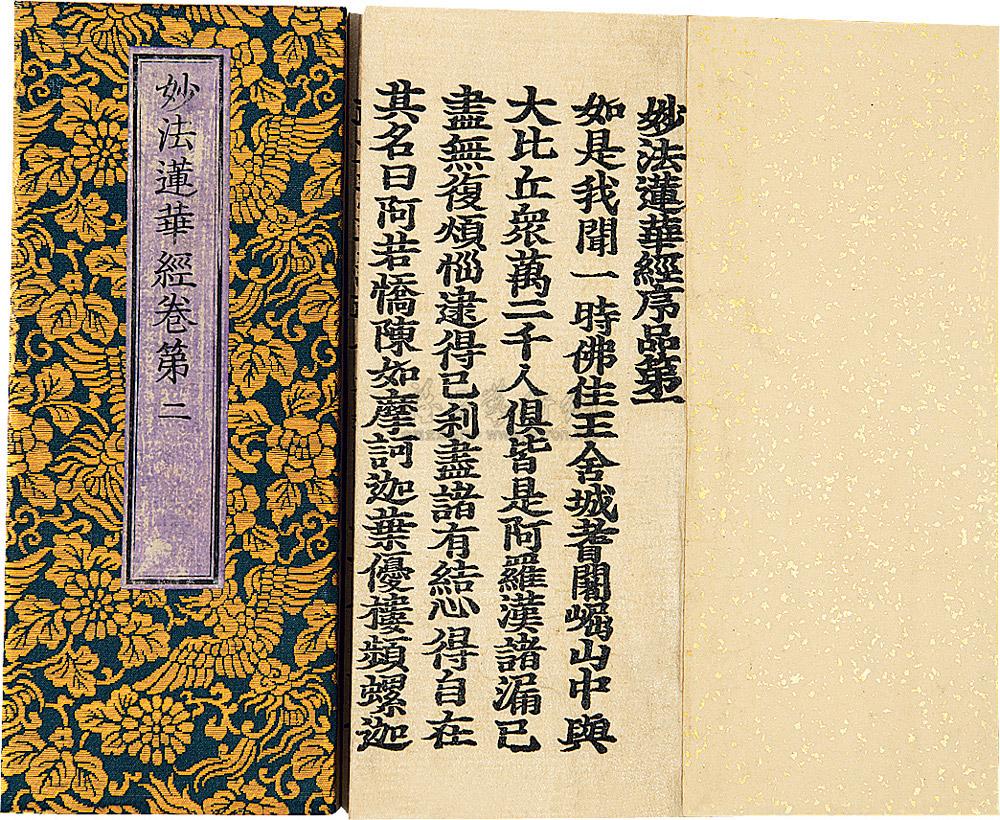 妙法蓮華經卷第二
妙法蓮華經序品第一
如是我聞一時佛住王舍城耆闍崛山中與
大比丘衆萬二千人俱皆是阿羅漢諸漏已
盡無復煩惱逮得己利盡諸有結心得自在
其名曰阿若憍陳如摩訶迦葉優樓頻螺迦